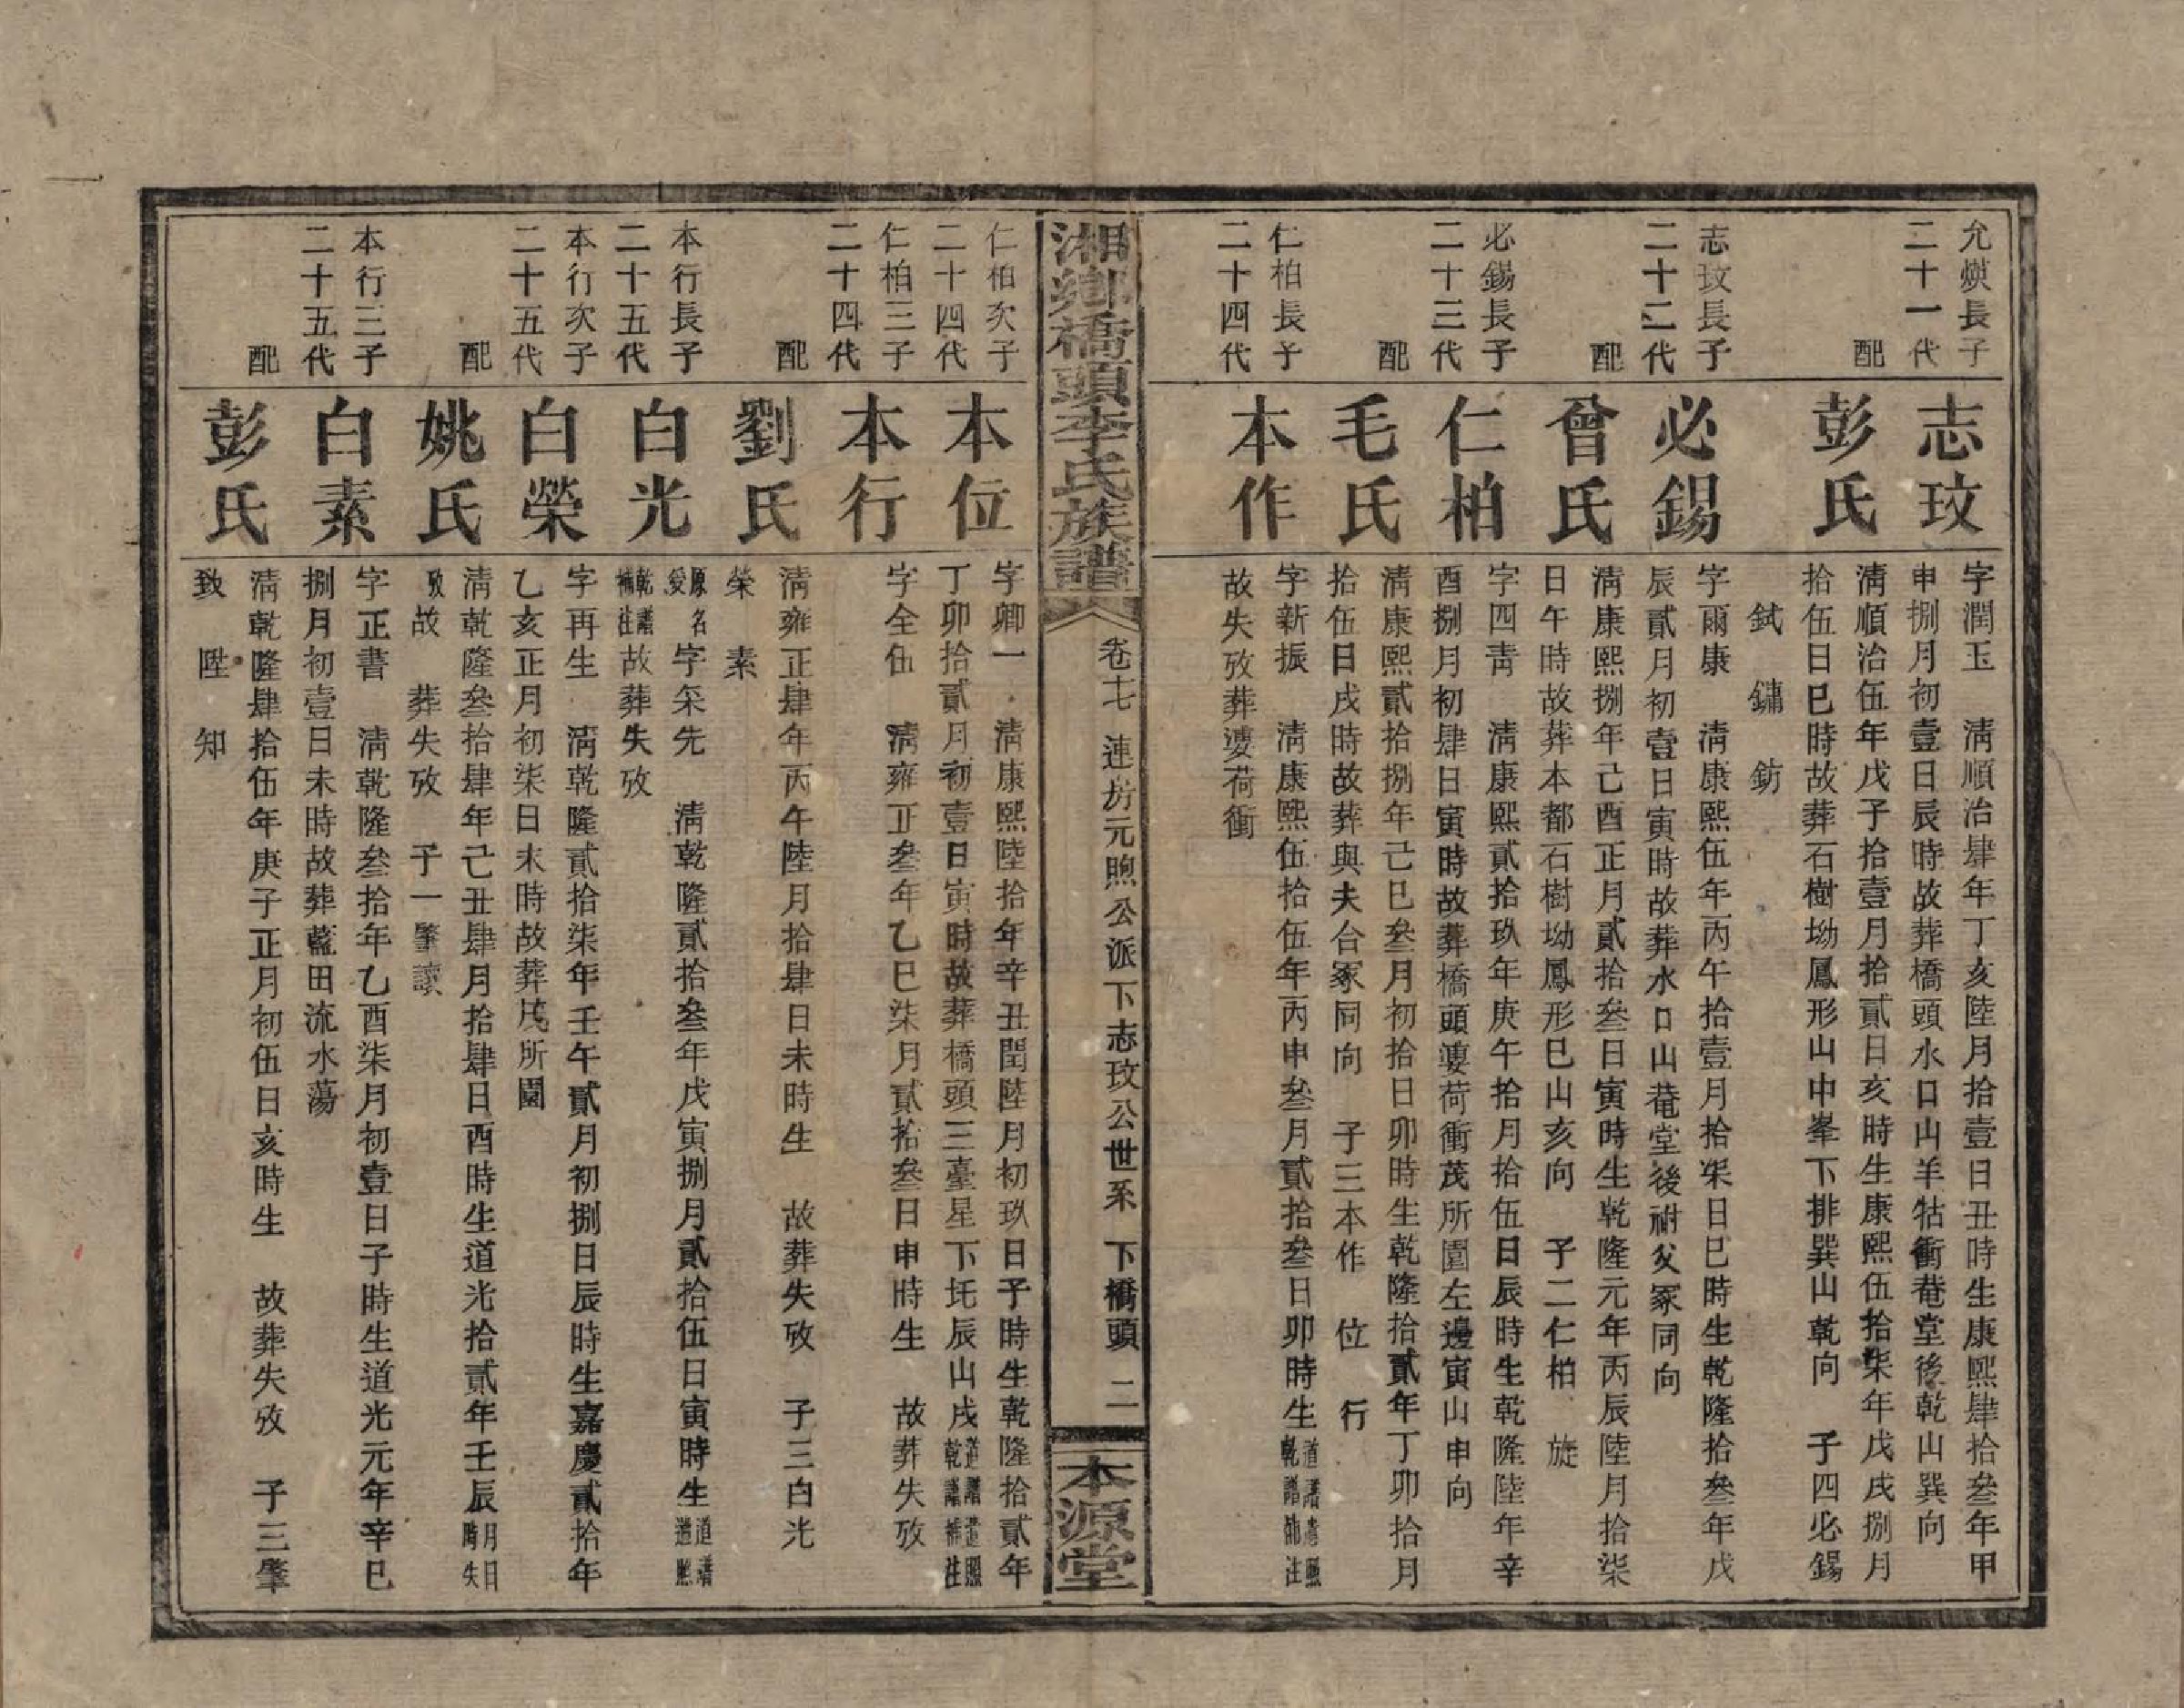 允煐長子
二十一代
志玟
字潤玉 清順治肆年丁亥陸月拾壹日丑時生康熙肆拾叁年甲
申捌月初壹日辰時故葬橋頭水口山羊牯衝菴堂後乾山巽向
配
彭氏
清順治伍年戊子拾壹月拾貳日亥時生康熙伍拾柒年戊戌捌月
拾伍日巳時故葬石樹坳鳳形山中峯下排巽山乾向 子四必錫
 鏞 鈁
志玟長子
二十二代
必錫
字爾康 清康熙伍年丙午拾壹月拾柒日巳時生乾隆拾叁年戊
辰貳月初壹日寅時故葬水口山菴堂後祔父冢同向
配
曾氏
清康熙捌年己酉正月貳拾叁日寅時生乾隆元年丙辰陸月拾柒
日午時故葬本都石樹坳鳳形巳山亥向 子二仁柏 旋
必錫長子
二十三代
仁柏
字四靑 清康熙貳拾玖年庚午拾月拾伍日辰時生乾隆陸年辛
酉捌月初肆日寅時故葬橋頭婆荷衝茂所園左邊寅山申向
配
毛氏
清康熙貳拾捌年己巳叁月初拾日卯時生乾隆拾貳年丁卯拾月
拾伍日戌時故葬與夫合冢同向 子三本作 位 行
仁柏長子
二十四代
本作
字新振 清康熙伍拾伍年丙申叁月貳拾叁日卯時生道譜遵照乾譜補注
故失攷葬婆荷衝
湘鄉橋頭李氏族譜
卷十七 連房元煦公派下志玟公世系 下橋頭 二
本源堂
仁柏次子
二十四代
本位
字卿一 清康熙陸拾年辛丑閏陸月初玖日子時生乾隆拾貳年
丁卯拾貳月初壹日寅時故葬橋頭三臺星下圫辰山戌道譜遵照乾譜補注
仁柏三子
二十四代
本行
字全伍 清雍正叁年乙巳柒月貳拾叁日申時生 故葬失攷
配
劉氏
清雍正肆年丙午陸月拾肆日未時生 故葬失攷 子三白光
榮 素
本行長子
二十五代
白光
原名爰 字采先 清乾隆貳拾叁年戊寅捌月貳拾伍日寅時生道譜遵照
乾譜補注故葬失攷
本行次子
二十五代
白榮
字再生 清乾隆貳拾柒年壬午貳月初捌日辰時生嘉慶貳拾年
乙亥正月初柒日未時故葬茂所園
配
姚氏
清乾隆叁拾肆年己丑肆月拾肆日酉時生道光拾貳年壬辰月日時失
攷故 葬失攷 子一肇讀
本行三子
二十五代
白素
字正書 清乾隆叁拾年乙酉柒月初壹日子時生道光元年辛巳
捌月初壹日未時故葬藍田流水蕩
配
彭氏
清乾隆肆拾伍年庚子正月初伍日亥時生 故葬失攷 子三肇
致 陞 知